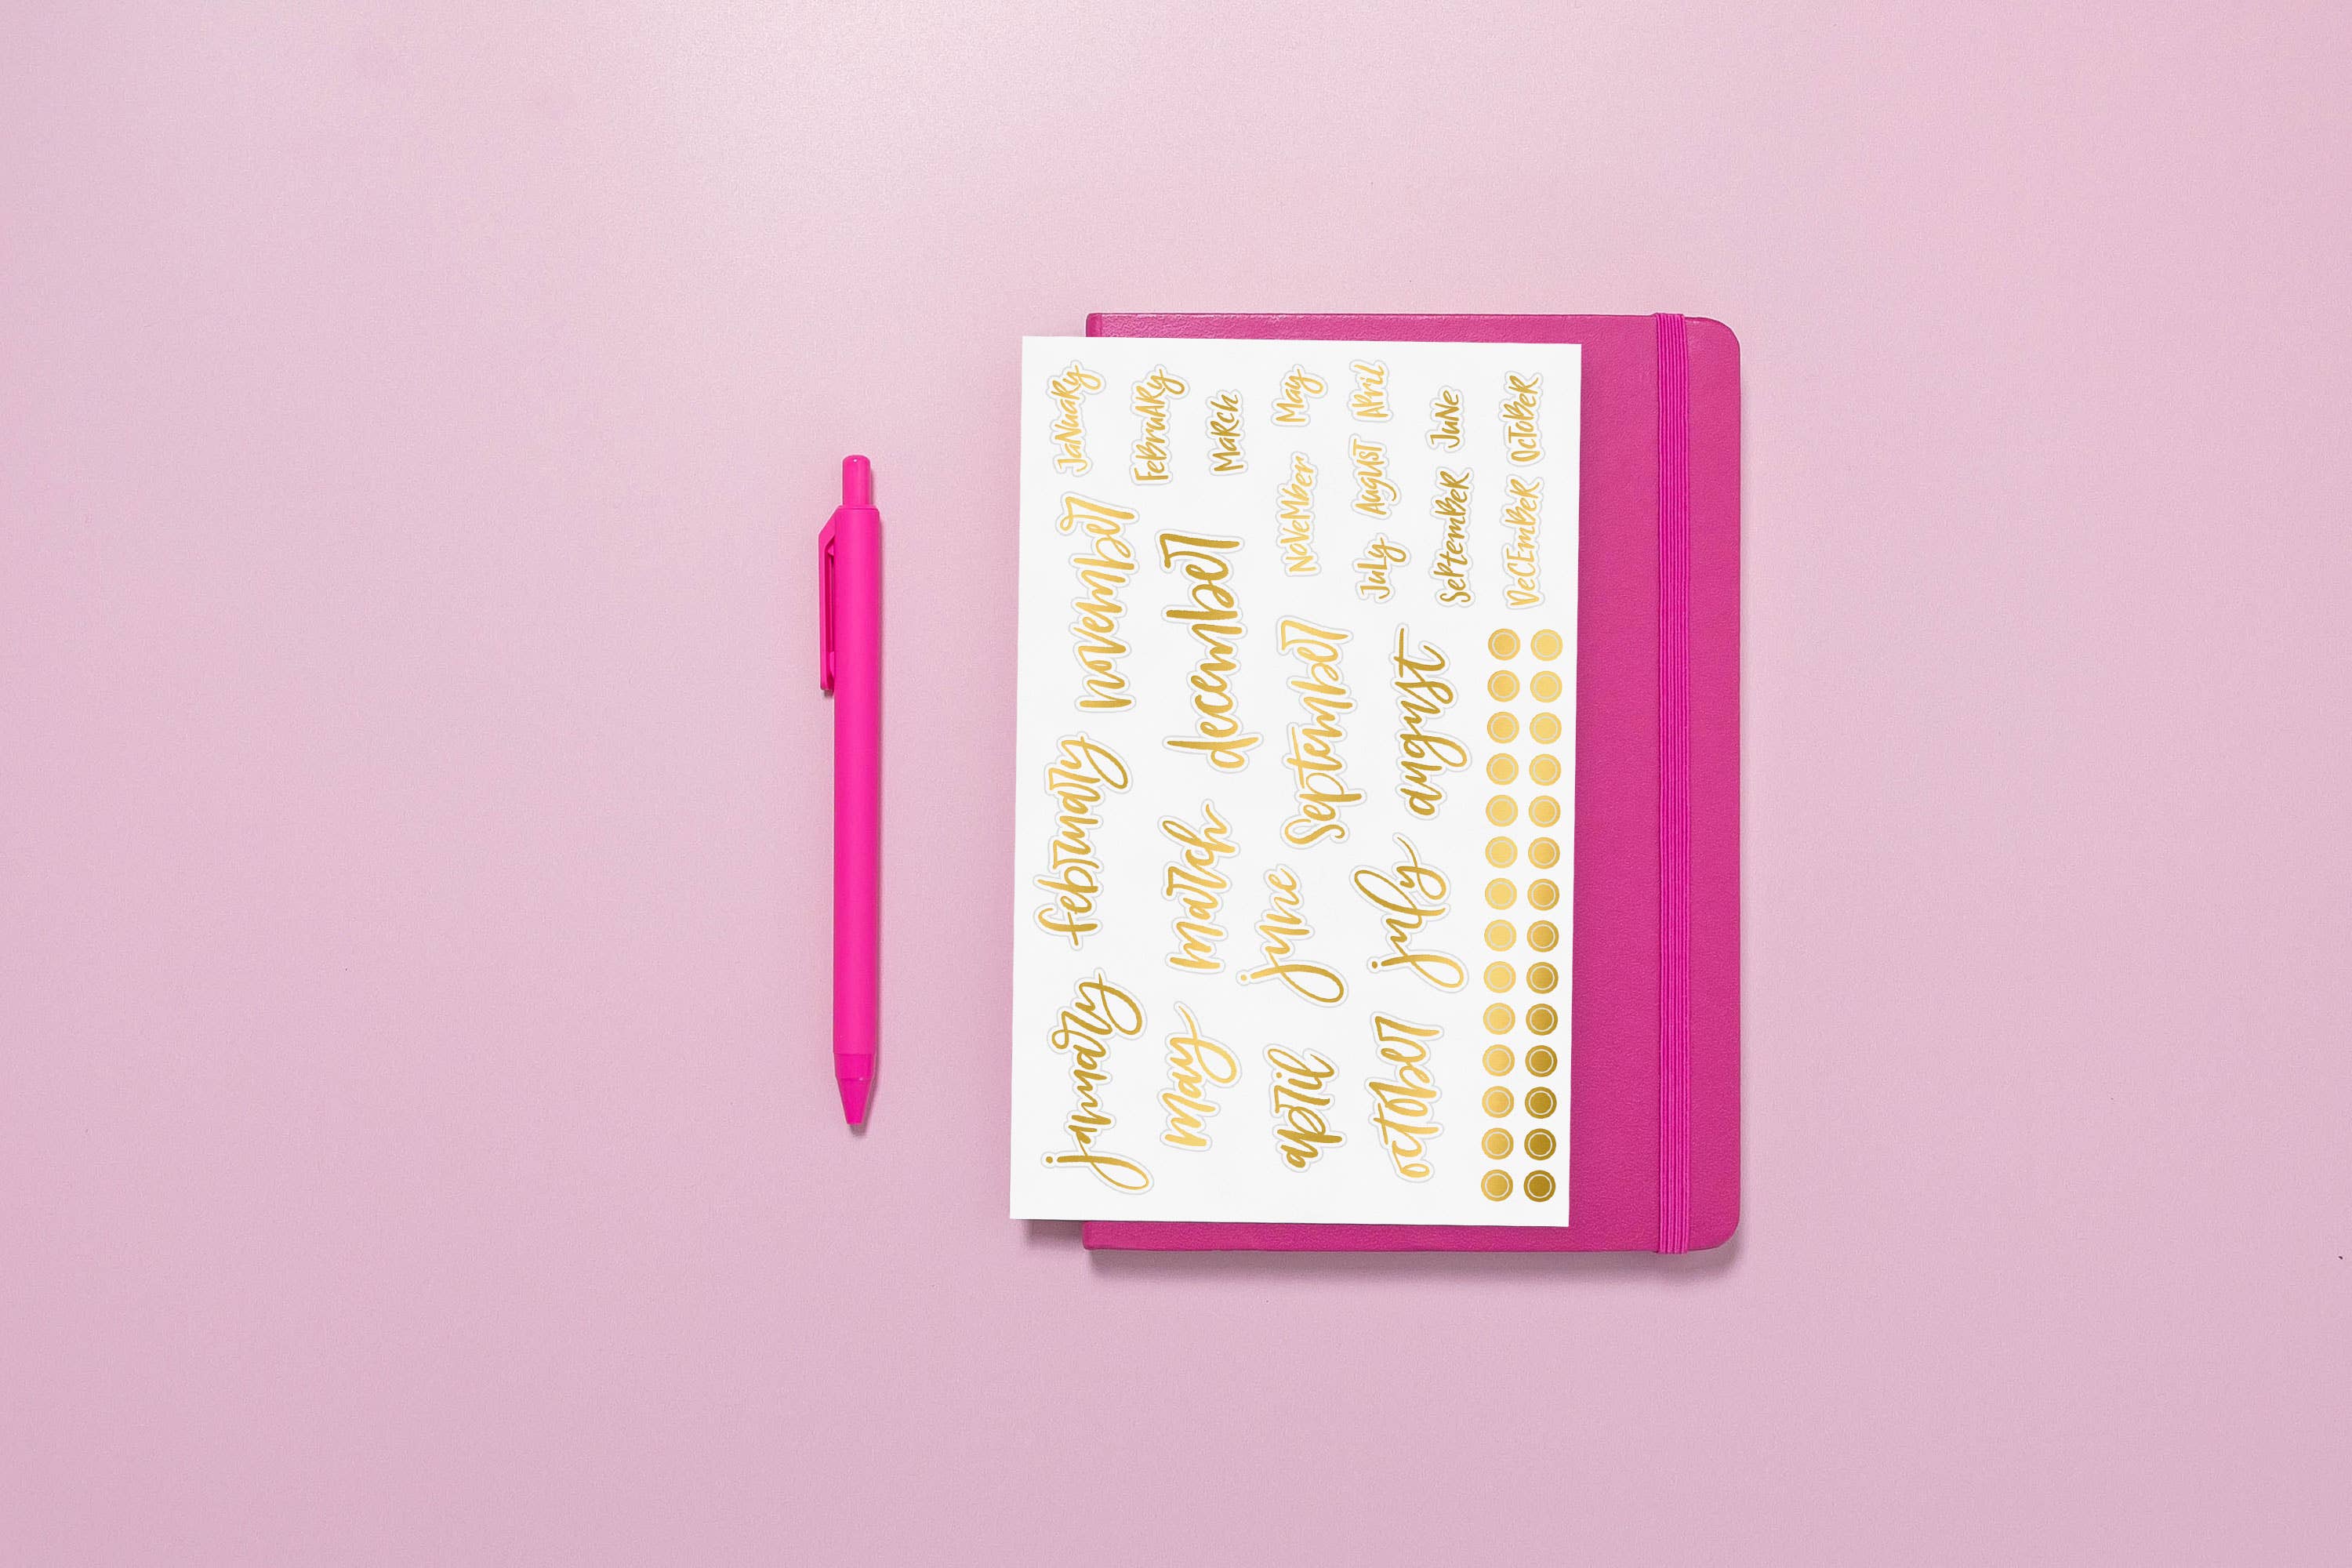 january february november January
may march december February
March
april june september November May
october july august July August April
September June
December October